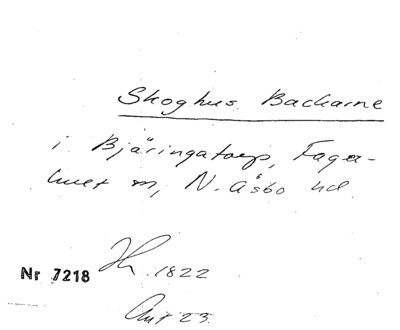 Skoghus Backarne
i Bjäringatorp, Fager-
hult m, N. Åsbo hd
Nr 7218
1822
23